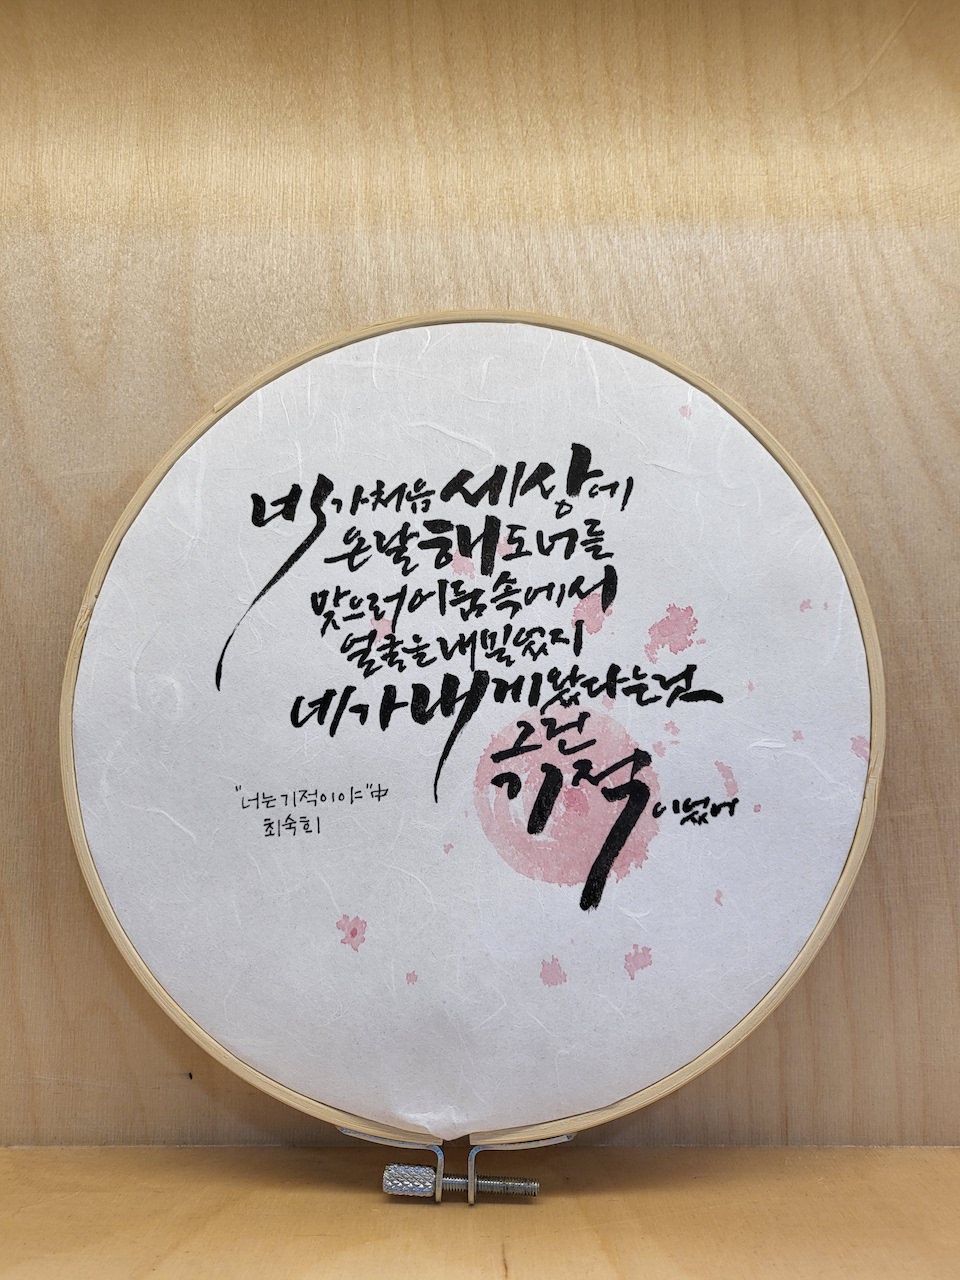 네가 처음 세상에
온 날 해도 너를
맞으러 어둠 속에서
얼굴을 내밀었지
네가 내게 왔다는 것
그런
기적이었어
"너는 기적이야" 中
최숙희